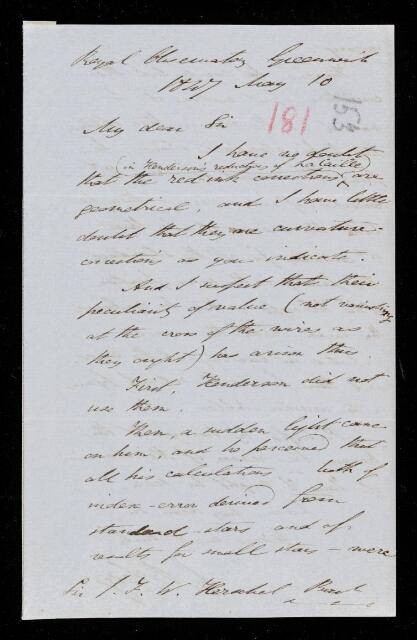 Royal Observatory Greenwich
1847 May 10
181
153
My dear Sir
I have no doubt
(in Henderson's reductions of LaCaille)
that the red ink corrections are
geometrical, and I have little
doubt that they are curvature-
corrections as you indicate.
And I suspect that their
peculiarity of value (not vanishing
at the cross of the wires as
they ought) has arisen thus.
First, Henderson did not
use them.
Then, a sudden light came
on him, and he perceived that
all his calculations – both of
index-error derived from
standard stars and of
results for small stars – were
Sir J. F. W. Herschel Bart